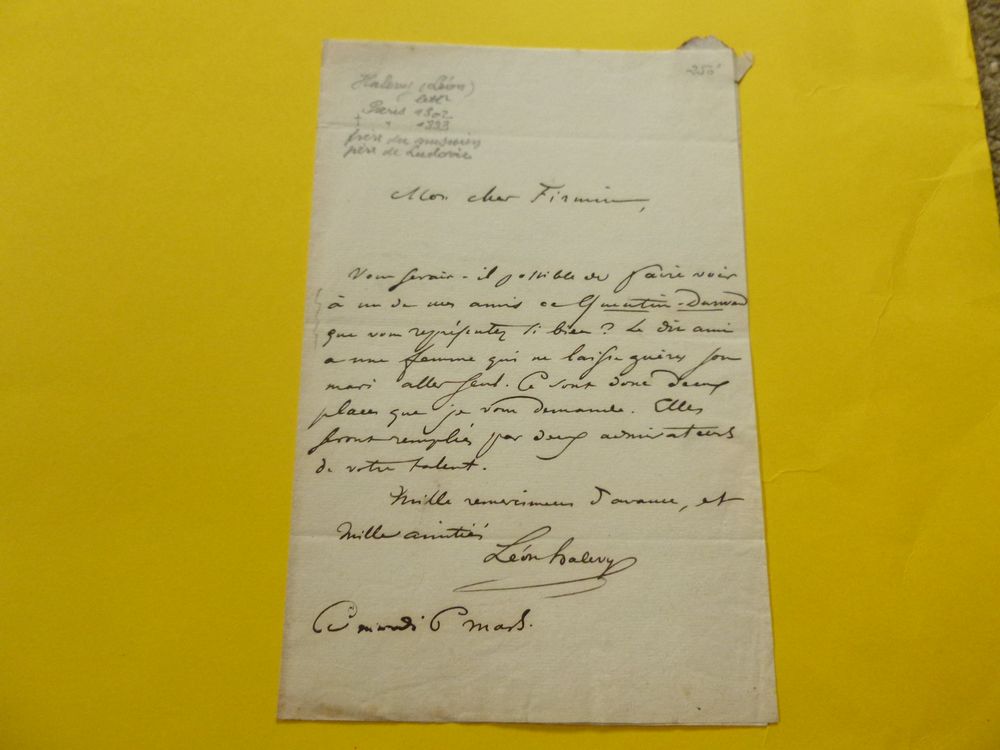 250
Halevy (Léon)
Paris 1802
† " 1883
frère du musicien
père de Ludovic
Mon cher Firmin,
Vous serait-il possible de faire voir
à un de mes amis ce Quentin-Durward
que vous représentez si bien ? Le dit ami
a une femme qui ne laisse guères son
mari aller seul. Ce sont donc deux
places que je vous demande. Elles
seront remplies par deux admirateurs
de votre talent.
Mille remercimens d'avance, et
mille amitiés
Léon halevy
Ce mardi 6 mars.